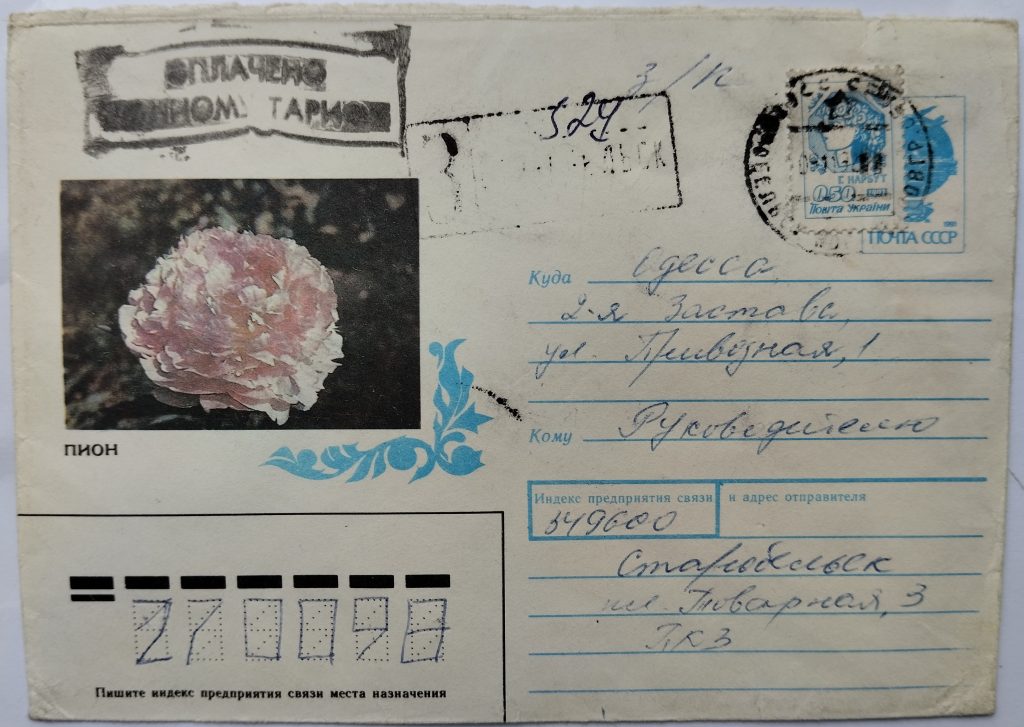 ОПЛАЧЕНО
ТАРИФ
з/п
529
З
ЕЛЬСК
Г. НАРБУТ
0.50
ПОШТА УКРАЇНИ
ПОЧТА СССР
Куда Одесса
2-я Застава,
ул. Приводная, 1
Кому Руководителю
ПИОН
Индекс предприятия связи и адрес отправителя
349600
Старобельск
ул. Товарная, 3
ПКЗ
270048
Пишите индекс предприятия связи места назначения